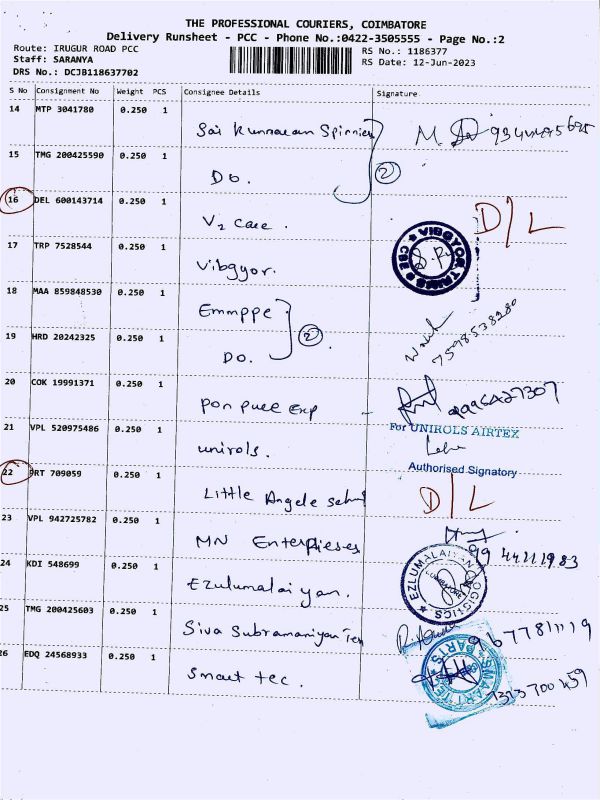 THE PROFESSIONAL COURIERS, COIMBATORE
Delivery Runsheet - PCC - Phone No.:0422-3505555 - Page No.:2
Route: IRUGUR ROAD PCC
RS No.: 1186377
Staff: SARANYA
RS Date: 12-Jun-2023
DRS No.: DCJB118637702
S No Consignment No Weight PCS Consignee Details Signature
14 MTP 3041780 0.250 1 Sai Kunnaran Spinnies
15 TMG 200425590 0.250 1 Do. 2
16 DEL 600143714 0.250 1 V2 care. D/L
17 TRP 7528544 0.250 1 Vibgyor. VIBGYOR CBE
18 MAA 859848530 0.250 1 Emmppe 7598538980
19 HRD 20242325 0.250 1 Do. 2
20 COK 19991371 0.250 1 pon pure Exp
For UNIROLS AIRTEX
21 VPL 520975486 0.250 1 unirols.
Authorised Signatory
22 PRT 709059 0.250 1 Little Angels D/L
23 VPL 942725782 0.250 1 MN Enterprises 9944111983
24 KDI 548699 0.250 1 Ezulumalaiyan. EZLUMALAIYAN LOGISTICS COIMBATORE
25 TMG 200425603 0.250 1 Siva Subramaniyan Tex 9677811119
26 EDQ 24568933 0.250 1 Smart tec. PARTS
7373700459